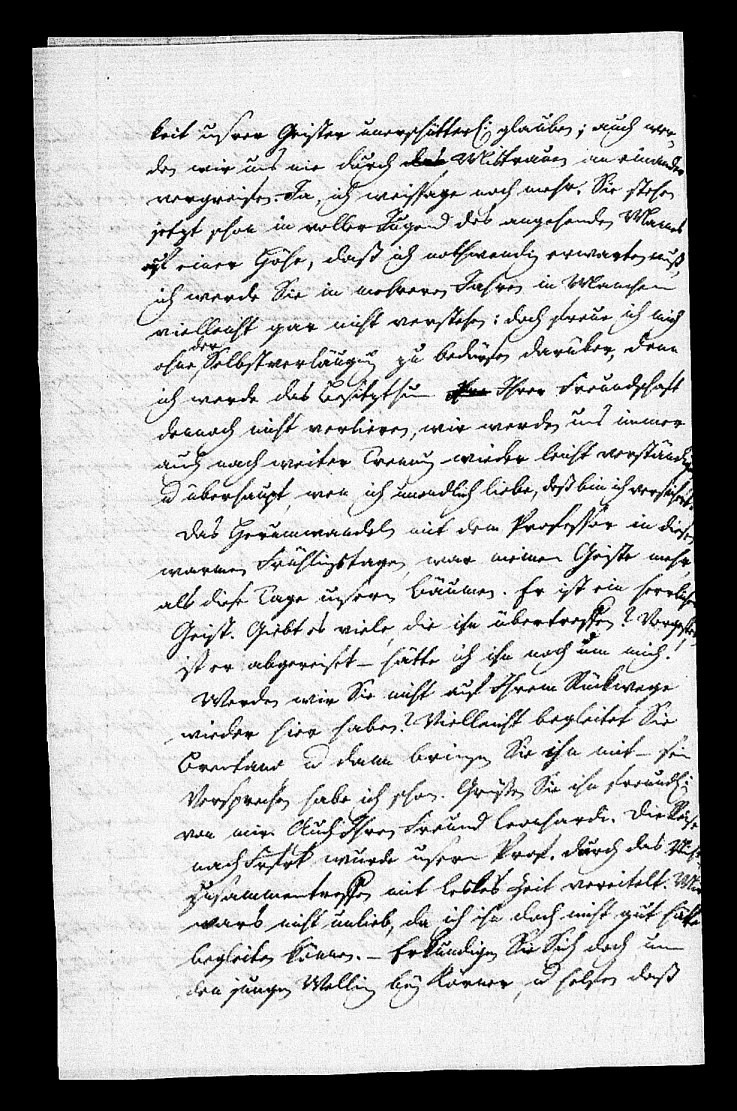 keit unsrer Geister unerschütterl: glauben; auch wer-
den wir uns nie durch das Mistrauen an einander
vergreifen. Ja, ich weissage noch mehr, Sie stehen
jetzt schon in voller Tugend des angehenden Mannes
auf einer Höhe, daß ich nothwendig erwarten muß,
ich werde Sie in mehreren Jahren in Manchem
vielleicht gar nicht verstehen: doch freue ich mich
ohne der Selbstverläugng zu bedürfen darüber, denn
ich werde das Besitzthum Ihrer Freundschaft
dennoch nicht verlieren, wir werden uns immer
auch nach weiter Trenng wieder leicht verständigen
u überhaupt, wen ich unendlich liebe, deß bin ich versichert.
Das Herumwandeln mit dem Professor in diesen
warmen Frühlingstagen war meinem Geiste mehr,
als diese Tage unsern Bäumen. Er ist ein herrlicher
Geist. Giebt es viele, die ihn übertreffen? Vorgestern
ist er abgereiset – hätte ich ihn noch um mich.
Werden wir Sie nicht auf Ihrem Rückwege
wieder hier haben? Vielleicht begleitet Sie
Brentano u dann bringen Sie ihn mit – sein
Versprechen habe ich schon. Grüßen Sie ihn freundl:
von mir. Auch Ihren Freund Leonhardi. Die Reise
nach Frfrt wurde unserm Prof. durch das
Zusammentreffen mit Leske's Zeit vereitelt. Mir
wars nicht unlieb, da ich ihn doch nicht gut hätte
begleiten können. – Erkundigen Sie Sich doch um
den jungen Welling bey Körner, u helfen daß